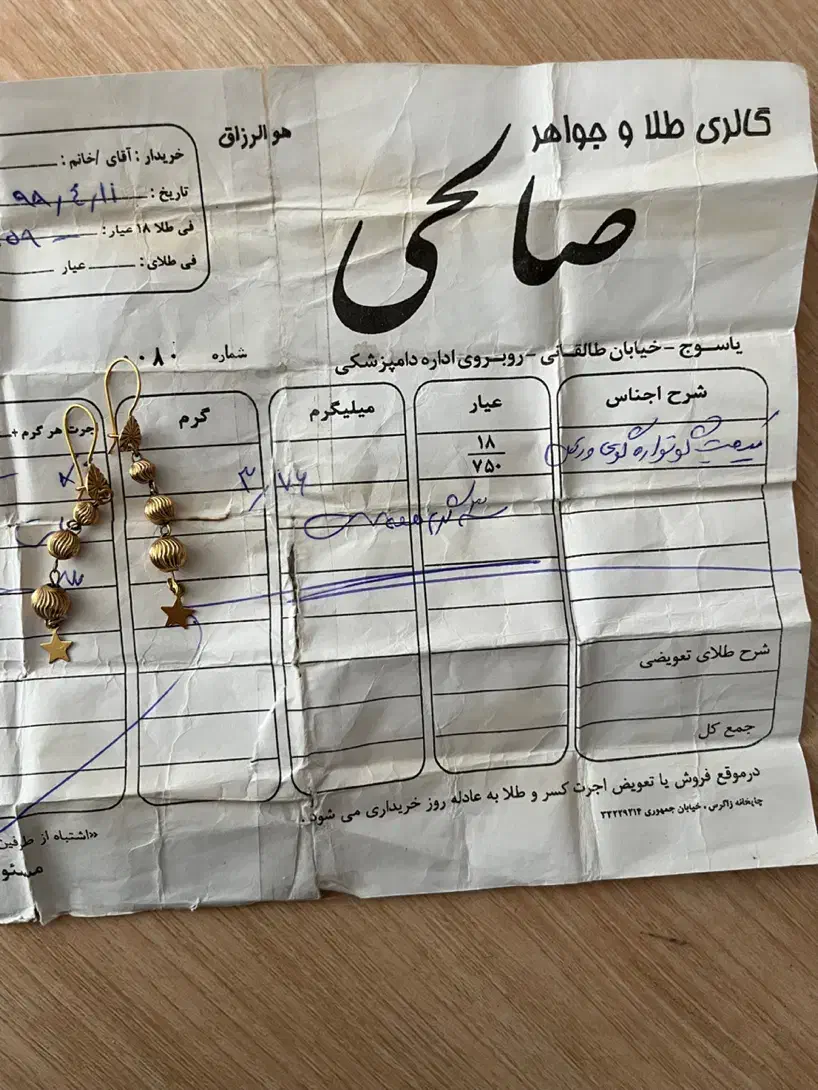 گالری طلا و جواهر
صالحی
هو الرزاق
خریدار : آقای /خانم :
تاریخ : ۹۸٫٤٫۱۱
فی طلا ۱۸ عیار :
فی طلای : عیار
یاسوج - خیابان طالقانی - روبروی اداره دامپزشکی
شماره ۰۰۸۰
شرح اجناس
عیار
میلیگرم
گرم
اجرت هر گرم +
گوشواره گوی
۱۸
۷۵۰
۳٫۷۶
سه گرم
شرح طلای تعویضی
جمع کل
درموقع فروش یا تعویض اجرت کسر و طلا به عادله روز خریداری می شود .
چاپخانه زاگرس ، خیابان جمهوری ۳۳۲۲۹۳۱۴
«اشتباه از طرفین